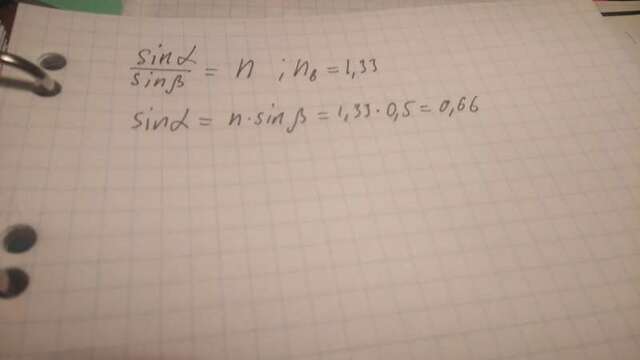 sinα/sinβ = n ; nв = 1,33
sinα = n·sinβ = 1,33·0,5 = 0,66